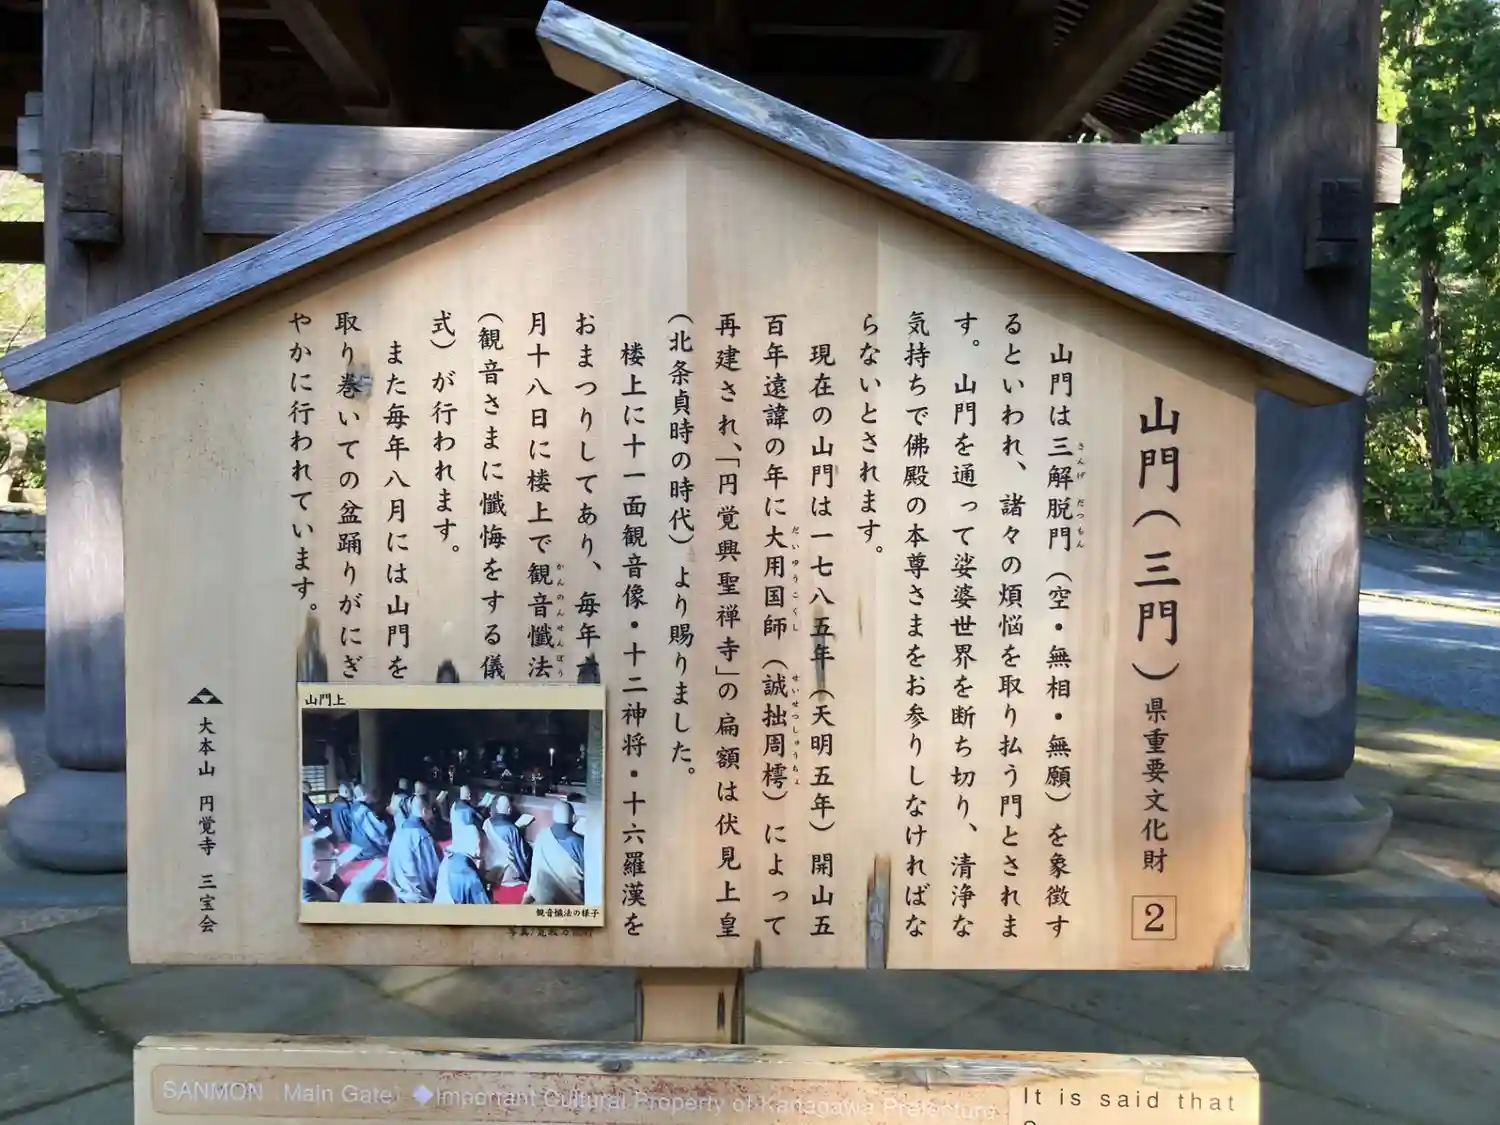 山門(三門)県重要文化財 2
山門は三解脱門(空・無相・無願)を象徴す
さんげ だつもん
るといわれ、諸々の煩悩を取り払う門とされま
す。山門を通って娑婆世界を断ち切り、清浄な
気持ちで佛殿の本尊さまをお参りしなければな
らないとされます。
現在の山門は一七八五年(天明五年)開山五
百年遠諱の年に大用国師(誠拙周樗)によって
だいゆうこくし せいせつしゅうちょ
再建され、「円覚興聖禅寺」の扁額は伏見上皇
(北条貞時の時代)より賜りました。
楼上に十一面観音像・十二神将・十六羅漢を
おまつりしてあり、毎年六
月十八日に楼上で観音懺法
かんのんせんぼう
(観音さまに懺悔をする儀
式)が行われます。
また毎年八月には山門を
取り巻いての盆踊りがにぎ
やかに行われています。
山門上
観音懺法の様子
大本山 円覚寺 三宝会
SANMON (Main Gate) ◆Important Cultural Property of Kanagawa Prefecture
It is said that